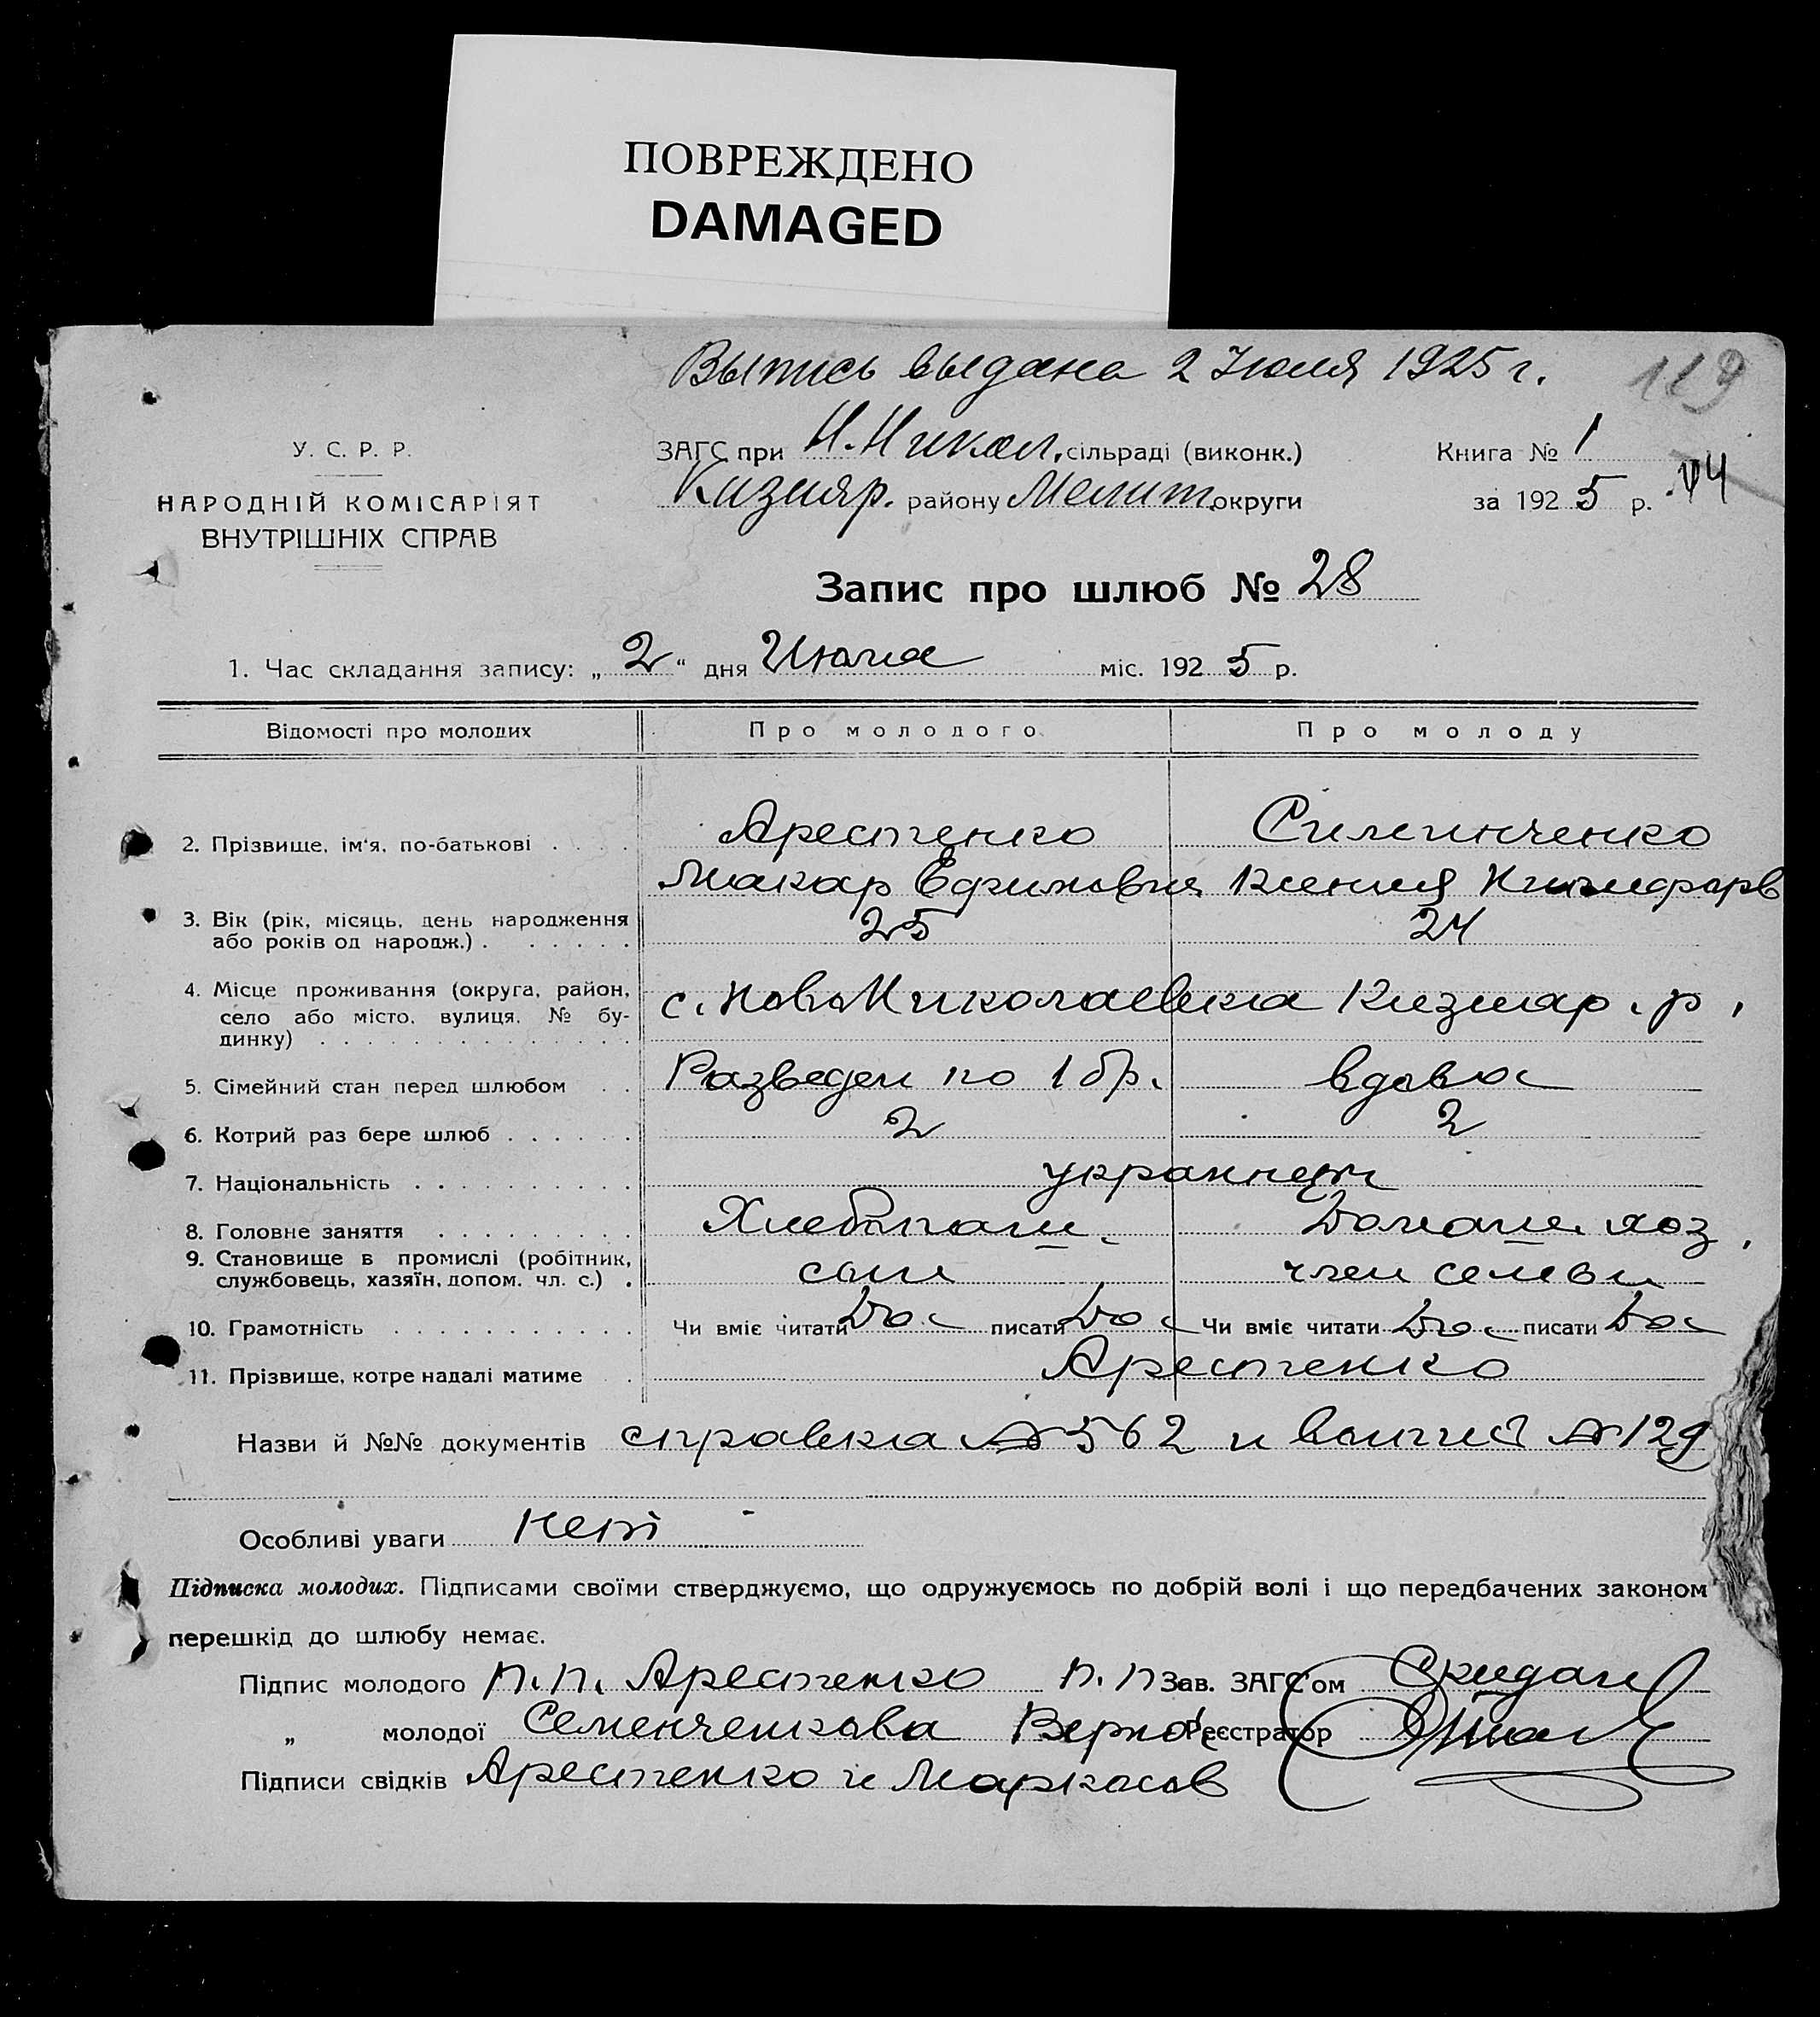 ПОВРЕЖДЕНО
DAMAGED
Выпись выдана 2 Июля 1925 г.
119
У. С. Р. Р.
НАРОДНІЙ КОМІСАРІЯТ
ВНУТРІШНІХ СПРАВ
ЗАГС при Н. Никол. сільраді (виконк.)
Кизияр. району Мелит. округи
Книга № 1
за 1925 р.
Запис про шлюб № 28
1. Час складання запису: „2“ дня Июля міс. 1925 р.
Відомості про молодих Про молодого Про молоду
2. Прізвище, ім'я, по-батькові . . . . Арестенко Силинченко
Макар Ефимович Ксения Никифоров
3. Вік (рік, місяць, день народження
або років од народж.) . . . . . . 25 24
4. Місце проживання (округа, район,
село або місто, вулиця, № бу-
динку) . . . . . . с. НовоНиколаевка Кизияр. р.
5. Сімейний стан перед шлюбом . . Разведен по 1 бр. вдова
6. Котрий раз бере шлюб . . . . . . 2 2
7. Національність . . . . . . . . . украинцы
8. Головне заняття . . . . . . . . Хлебопаш. Домаш. хоз.
9. Становище в промислі (робітник,
службовець, хазяїн, допом. чл. с.) . сын член семьи
10. Грамотність . . . . . . . . . . Чи вміє читати Да писати Да Чи вміє читати Да писати Да
11. Прізвище, котре надалі матиме . . Арестенко
Назви й №№ документів справка № 562 и выпись № 129
Особливі уваги нет
Підписка молодих. Підписами своїми стверджуємо, що одружуємось по добрій волі і що передбачених законом
перешкід до шлюбу немає.
Підпис молодого п. п. Арестенко п. п Зав. ЗАГС'ом Скидан
„ молодої Семенченкова Верно: Реєстратор
Підписи свідків Арестенко и